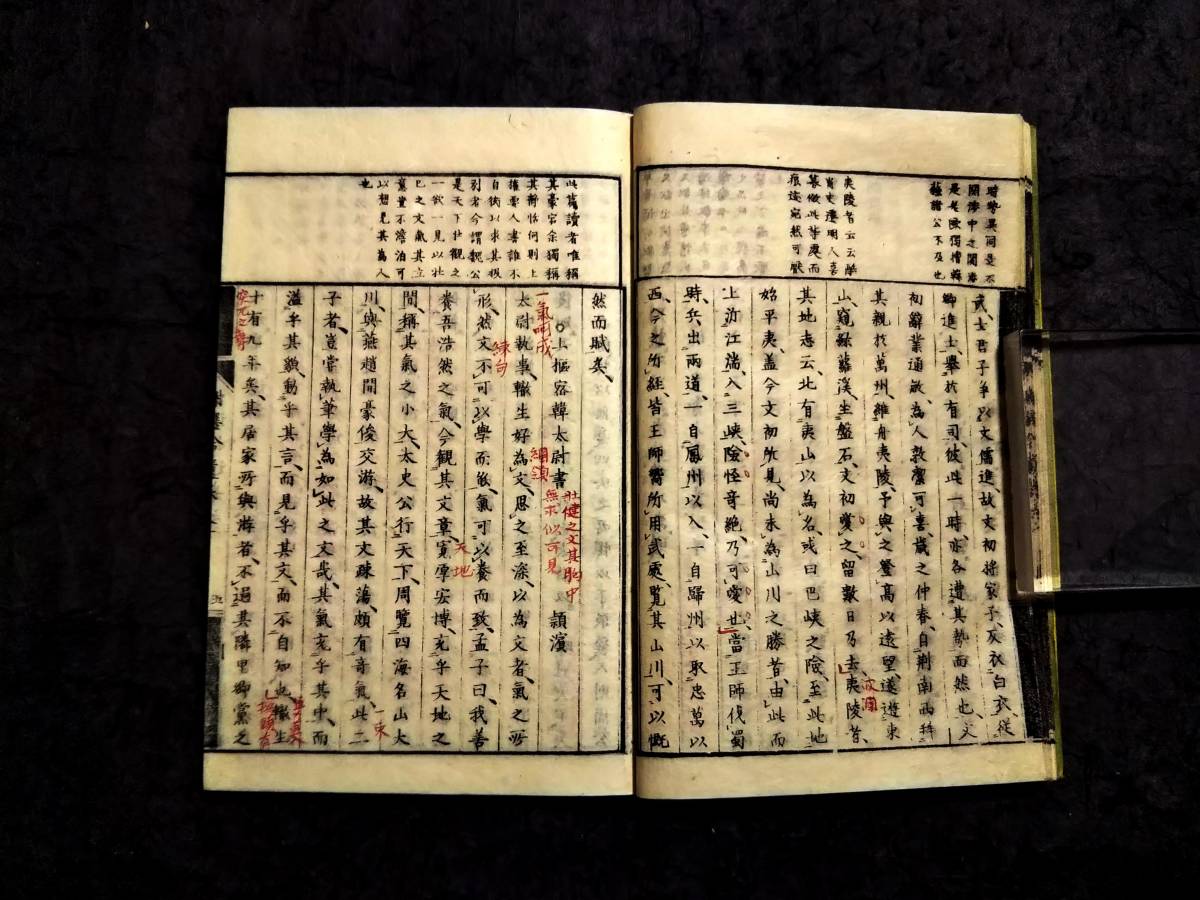 時勢異同是不
關涉中之關涉
是老歐獨擅韓
蘇諸公不及也
夷陵昔云云學
眉史遷明人喜
摹倣此等處而
痕迹宛然可厭
武士君子爭以文儒進故文初將家子灰衣白衣從
鄉進士舉於有司彼此一時亦各遭其勢而然也文
初辭業通敏為人敦潔可喜歲之仲春自荊南西拜
其親於萬州維舟夷陵予與之登高以遠望遂遊東
山窺綠蘿溪坐盤石文初愛之留數日乃去夷陵昔
其地志云北有夷山以為名或曰巴峽之險至此地
始平夷蓋今文初所見尚未為山川之勝者由此而
上泝江湍入三峽險怪奇絕乃可愛也當王師伐蜀
時兵出兩道一自鳳州以入一自歸州以取忠萬以
西今之所經皆王師嚮所用武處覽其山川可以慨
波瀾
此篇讀者唯稱
其豪宕余獨稱
其奇恬何則上
權要人書誰不
自衒以求其扱
引者今謂觀公
是天下壯觀之
一欲一見以壯
己之文氣其立
意豈不澹泊可
以想見其為人
也
然而賦矣
上樞密韓太尉書
潁濱
太尉執事轍生好為文思之至深以為文者氣之所
形然文不可以學而能氣可以養而致孟子曰我善
養吾浩然之氣今觀其文章寬厚宏博充乎天地之
間稱其氣之小大太史公行天下周覽四海名山大
川與燕趙間豪俊交游故其文疎蕩頗有奇氣此二
子者豈嘗執筆學為如此之文哉其氣充乎其中而
溢乎其貌動乎其言而見乎其文而不自知也轍生
十有九年矣其居家所與游者不過其隣里鄉黨之
一氣呵成
壯健之文其胸中
無求似可見
綱領
練句
天地
一束
九